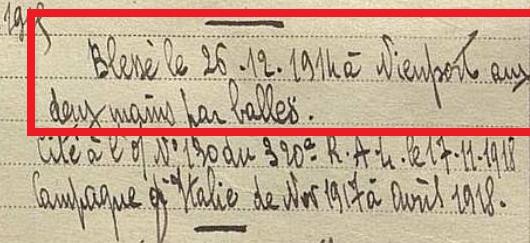 191
Blessé le 26.12.1914 à Nieuport aux
deux mains par balles.
Cité à l'o/ N° 130 du 320e R.A.L. le 17-11-1918
Campagne d'Italie de Nov 1917 à Avril 1918.